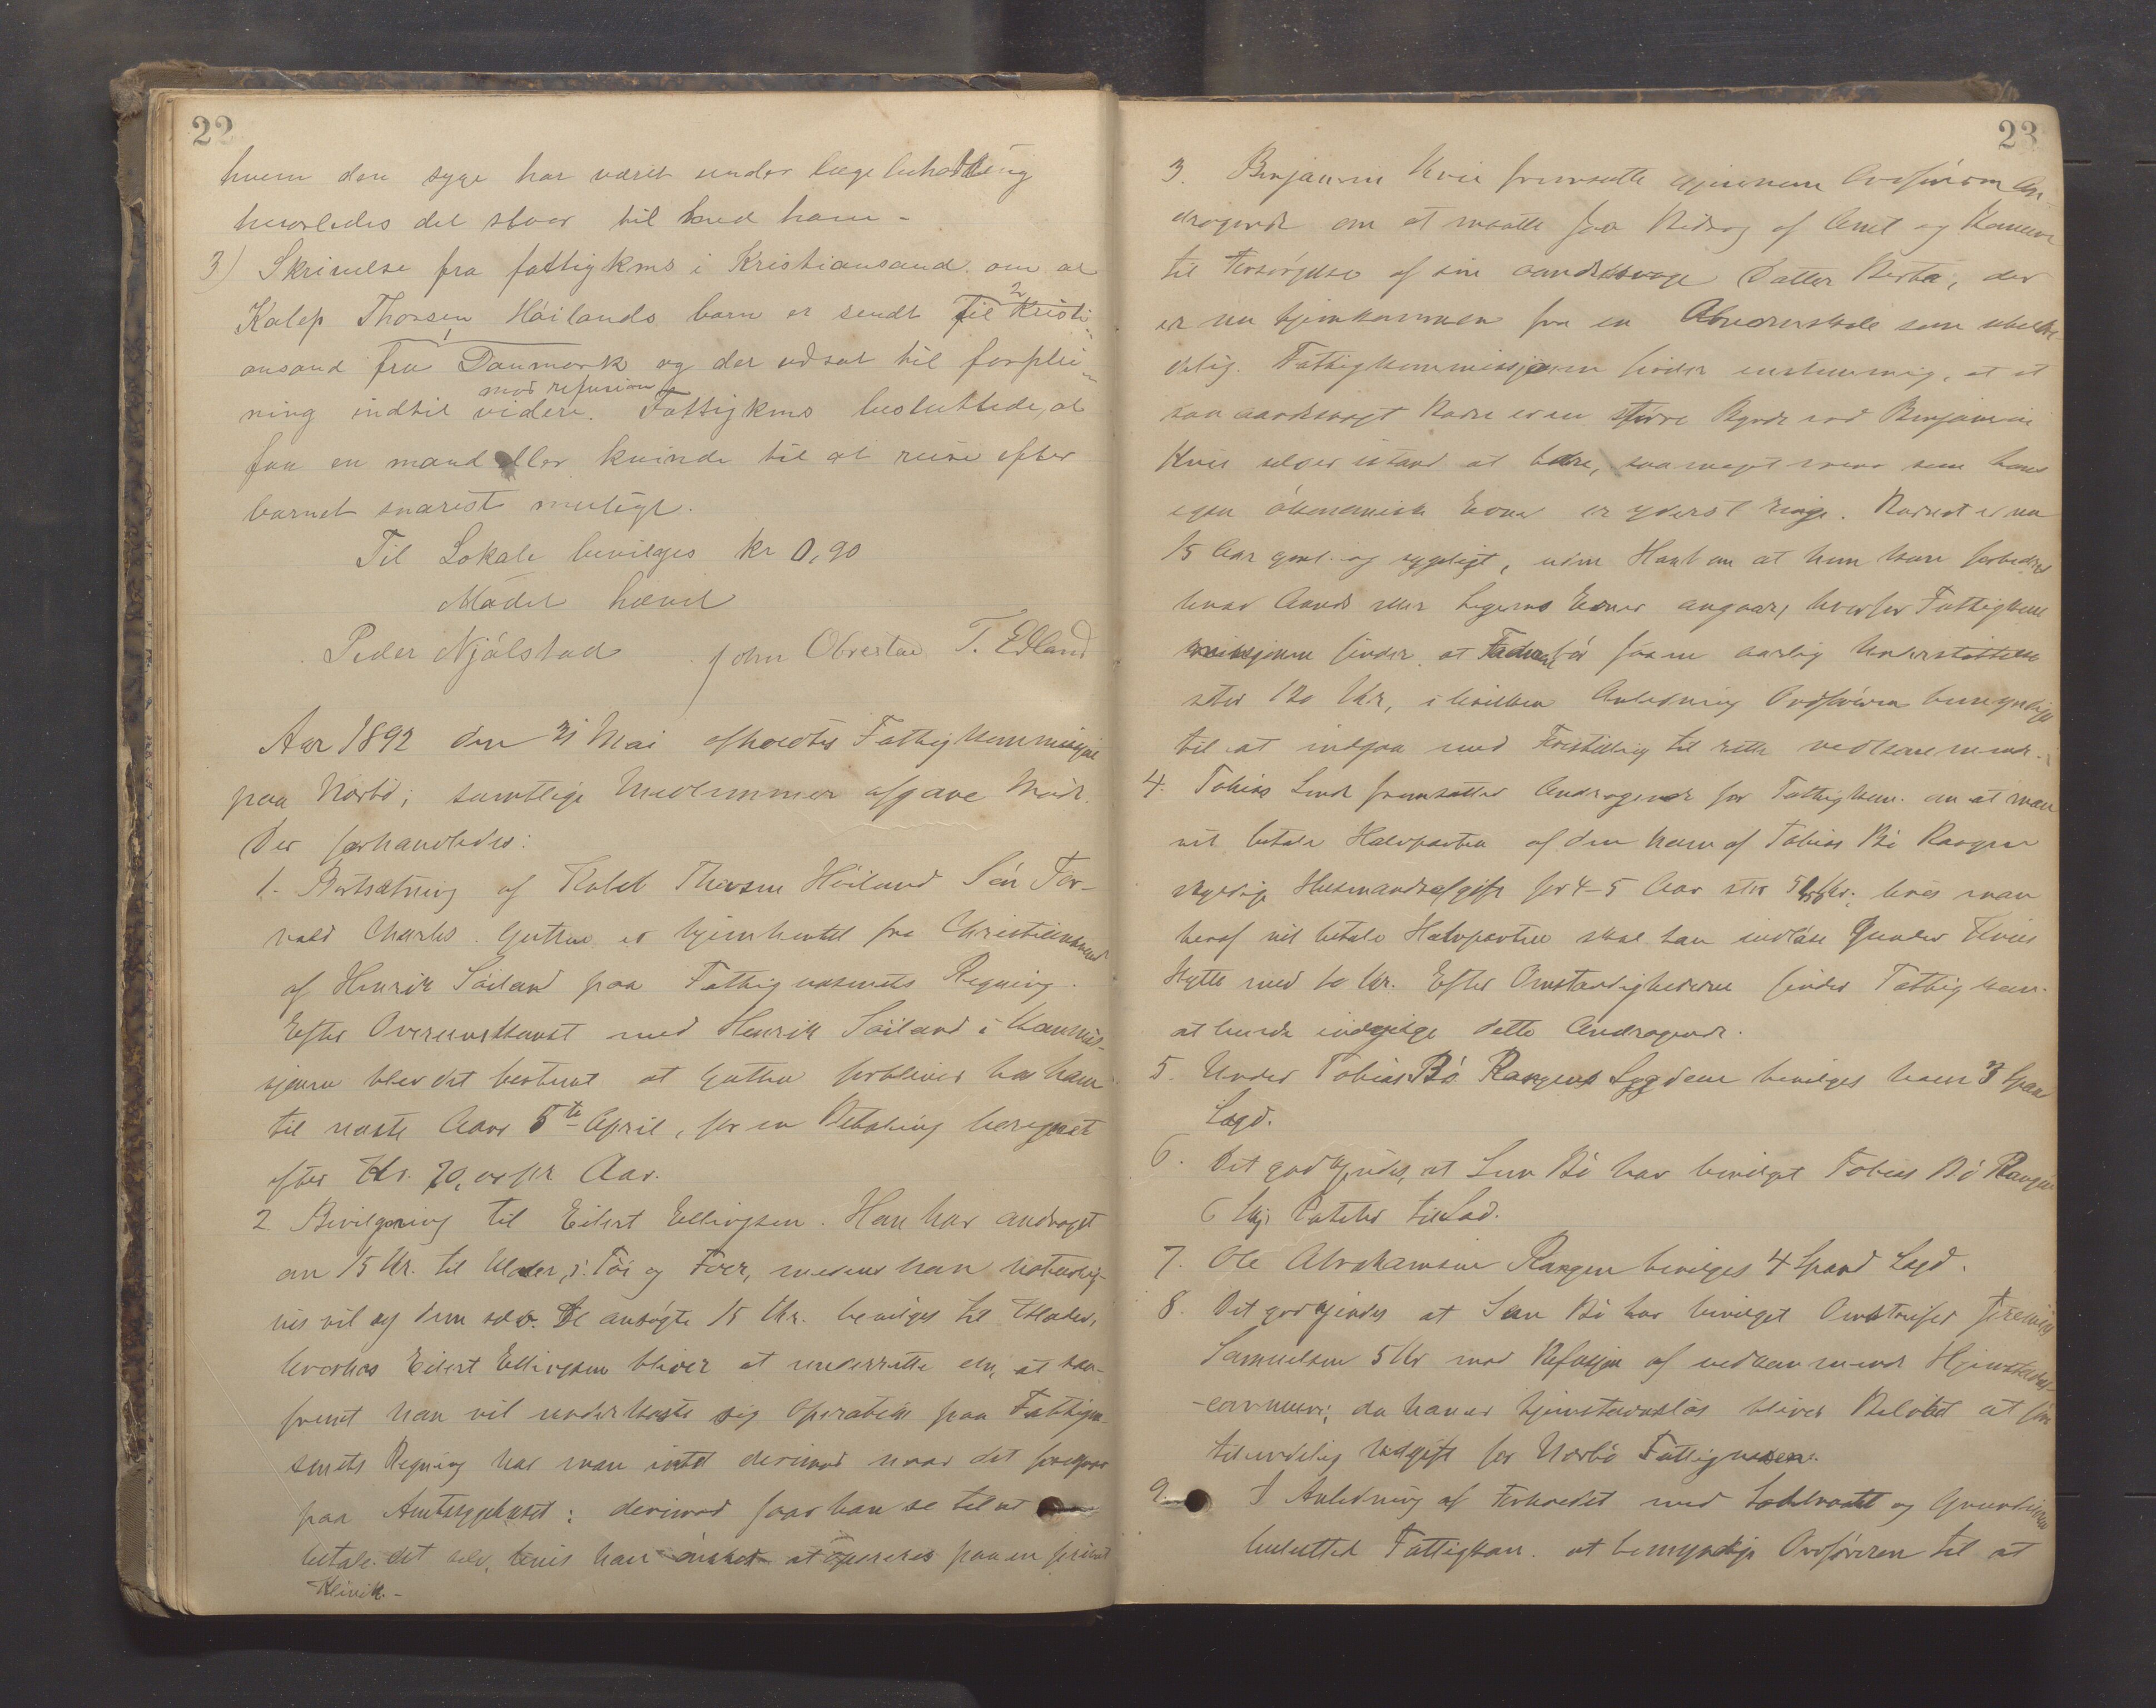 22
hvem den syge har været under lægebehandling
hvorledes det staar til med ham -
3) Skrivelse fra fattigkms i Kristiansand om at
Kalep Thorsen Höilands barn er sendt til Kristi-
ansand fra Danmark og der udsat til forplei-
ning indtil videre. mod refusion Fattigkms besluttede, at
faa en mand eller kvinde til at reise efter
barnet snarest muligt.
Til Lokale bevilges kr 0,90
Mödet hævet
Peder Njålstad John Obrestad T. Edland
Aar 1892 den 31 Mai afholdtes Fattigkommisjon
paa Nærbö; samtlige Medlemmer afgave Möde.
Der forhandledes:
1. Bortsætning af Kaleb Thorsen Höiland Sön Tor-
vald Charles. Gutten er hjemhentet fra Christiansand
af Henrik Söiland paa Fattigvæsenets Regning.
Efter Overenskomst med Henrik Söiland i Kommis-
sjonen blev det bestemt at Gutten forbliver hos ham
til næste Aars 5te April, for en Betaling beregnet
efter Kr. 70,00 pr Aar.
2 Bevilgning til Eilert Ellingsen. Han har andraget
om 15 Kr. til Klæder, i Töi og Foer, medens han
vil sy dem selv. De ansögte 15 Kr. bevilges til Klæder,
hvorhos Eilert Ellingsen bliver at underrette om, at saa-
fremt han vil underkaste sig Operation paa Fattigvæ-
senets Regning har man intet derimod naar det foregaar
paa Amtssygehuset; derimod faar han se til at
betale det selv, hvis han ønsker at opereres paa en privat
Klinik. -
23
3. Benjamin Kvie fremsatte gjennem Ordföreren An-
dragende om at maatte faa Bidrag af Amt og Kommune
til Forsörgelse af sin aandssvage Datter Berta, der
er nu hjemkommen fra en Abnormskole som uhelbre-
delig. Fattigkommissjonen finder enstemmig, at et
saa aandssvagt Barn er en större Byrde end Benjamin
Kvie selv er istand at bære, saa meget mere som hans
egen ökonomisk Evne er yderst ringe. Barnet er nu
15 Aar gml. og sygeligt, uden Haab om at hun kan forbedres
hvad Aands eller Legems Evner angaar, hvorfor Fattigkom
missjonen finder at Faderen bör faa en aarlig Understöttelse
stor 120 Kr, i hvilken Anledning Ordföreren bemyndiges
til at indgaa med Forestilling til rette vedkommende.
4. Tobias Lende fremsatter Andragende for Fattigkom. om at man
vil betale Halvparten af den ham af Tobias Bö Rangen
skyldige Husmandsafgift for 4-5 Aar stor Kr.; hvis man
heraf vil betale Halvparten skal han indlöse Gunder Kvies
Hytte med 10 Kr. Efter Omstændighederne finder Fattigkom.
at burde indvilge dette Andragende.
5. Under Tobias Bö Rangens Sygdom bevilges ham 3 Spand
Lagd.
6. Det godkjendes, at Bö har bevilget Tobias Bö Rangen
6 Poteter til Sæd.
7. Ole Abrahamsen Rangen bevilges 4 Spand Lagd.
8. Det godkjendes at Bö har bevilget Omstreifer Jeremias
Samuelsen 5 Kr mod Refusjon af vedkommende Hjemstavns-
-commune; da han er hjemstavnslös bliver Belöbet at före
til endelig Udgift for Nærbö Fattigvæsen.
9. I Anledning af Forholdet med og
besluttet Fattigkom. at bemyndige Ordföreren til at